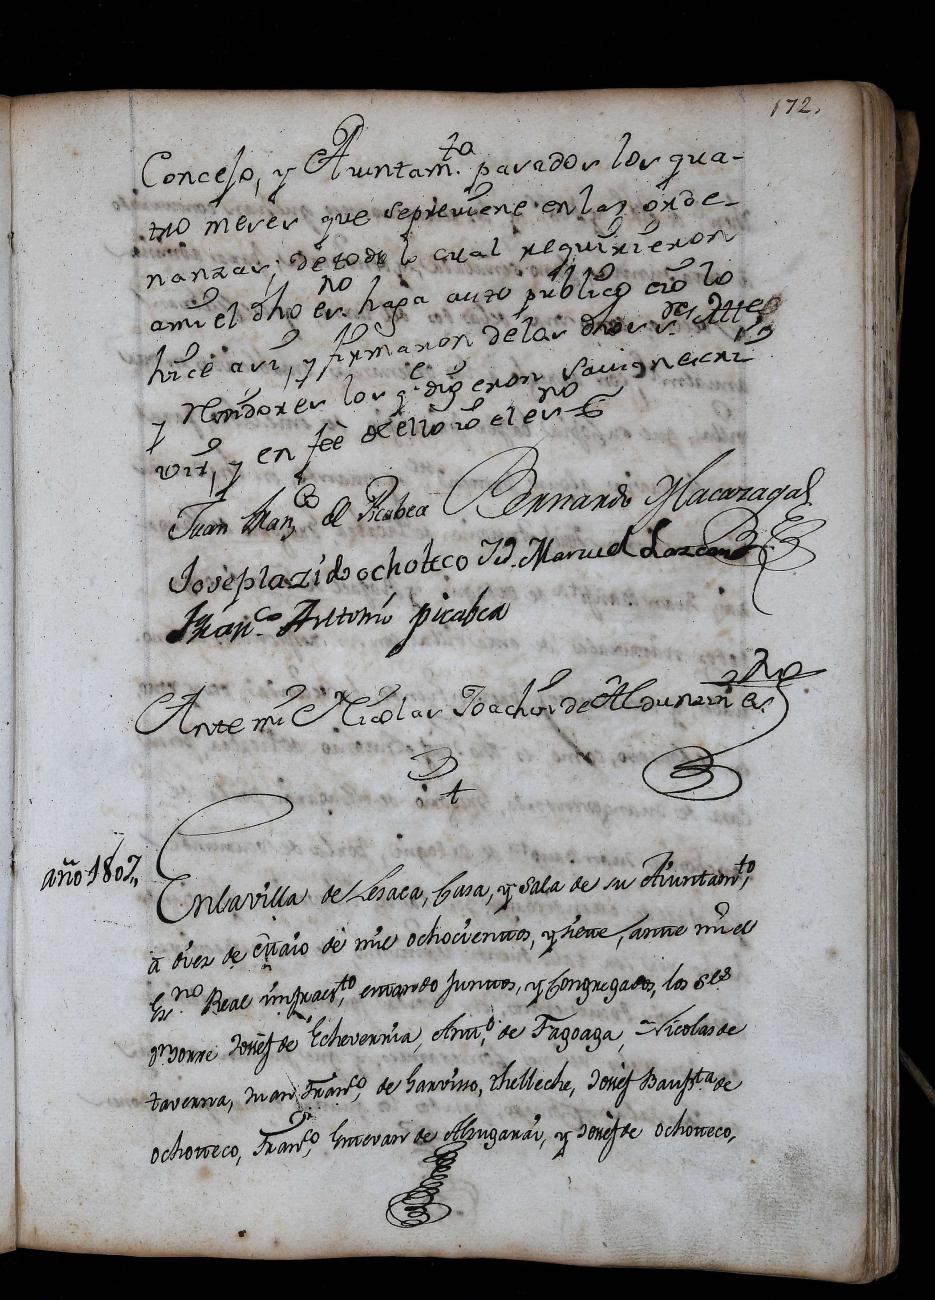 172.
Concejo, y Aiuntam.to pasados los qua-
tro meses que sepreviene en las orde-
nanzas; de todo lo cual requirieron
ami el dho es.no haga auto publico e io lo
hice asi, y firmaron de los dhos s.res Alc.e
y Rexidores los q.e digeron savian escri
vir, y en feè de ello io el es.no
Juan Mar.z de Picabea Bernardo Macazaga
Joseplazido ochoteco Jd. Manuel Lazcano
Fran.co Antonio picabea
Ante mi Nicolas Joachin de Aldunzin es.no
+
año 1807,,
En la villa de Lesaca, Casa, y Sala de su Aiuntam.to,
à diez de Maio de mil ochocientos, y siete, ante mi el
Es.no Real infraes.to, estando Juntos, y Congregados, los S.res
Josef de Echeverria, Ant.o de Fagoaga, Nicolas de
taverna, Juan Fran.co de Sarvisso, thelleche, Josef Baup.ta de
ochoteco, Fran.co Estevan de Alzugarai, y Josef de ochoteco,